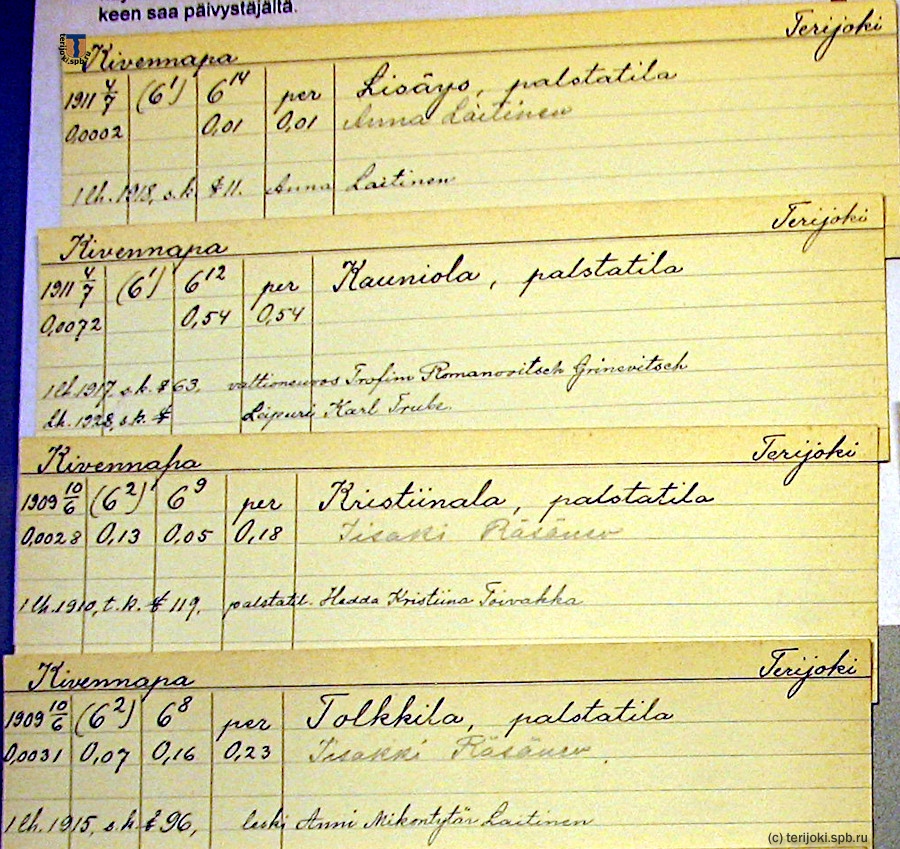 keen saa päivystäjältä.
T terijoki.spb.ru
Kivennapa Terijoki
1911 4/7 (6¹) 6¹⁴ per Lisäys, palstatila
0,0002 0,01 0,01 Anna Laitinen
1 lh. 1918, s.k. § 11. Anna Laitinen
Kivennapa Terijoki
1911 4/7 (6¹) 6¹² per Kauniola, palstatila
0,0072 0,54 0,54
1 lh. 1917, s.k. § 63, valtioneuvos Trofim Romanovitsch Grinevitsch
lh. 1928, s.k. § Leipuri Karl Trube
Kivennapa Terijoki
1909 10/6 (6²) 6⁹ per Kristiinala, palstatila
0,0028 0,13 0,05 0,18 Iisaki Räsänen
1 lh. 1910, t.k. § 119, palstatil. Hedda Kristiina Toivakka
Kivennapa Terijoki
1909 10/6 (6²) 6⁸ per Tolkkila, palstatila
0,0031 0,07 0,16 0,23 Iisakki Räsänen
1 lh. 1915, s.k. § 96, leski Anni Mikontytär Laitinen
(c) terijoki.spb.ru